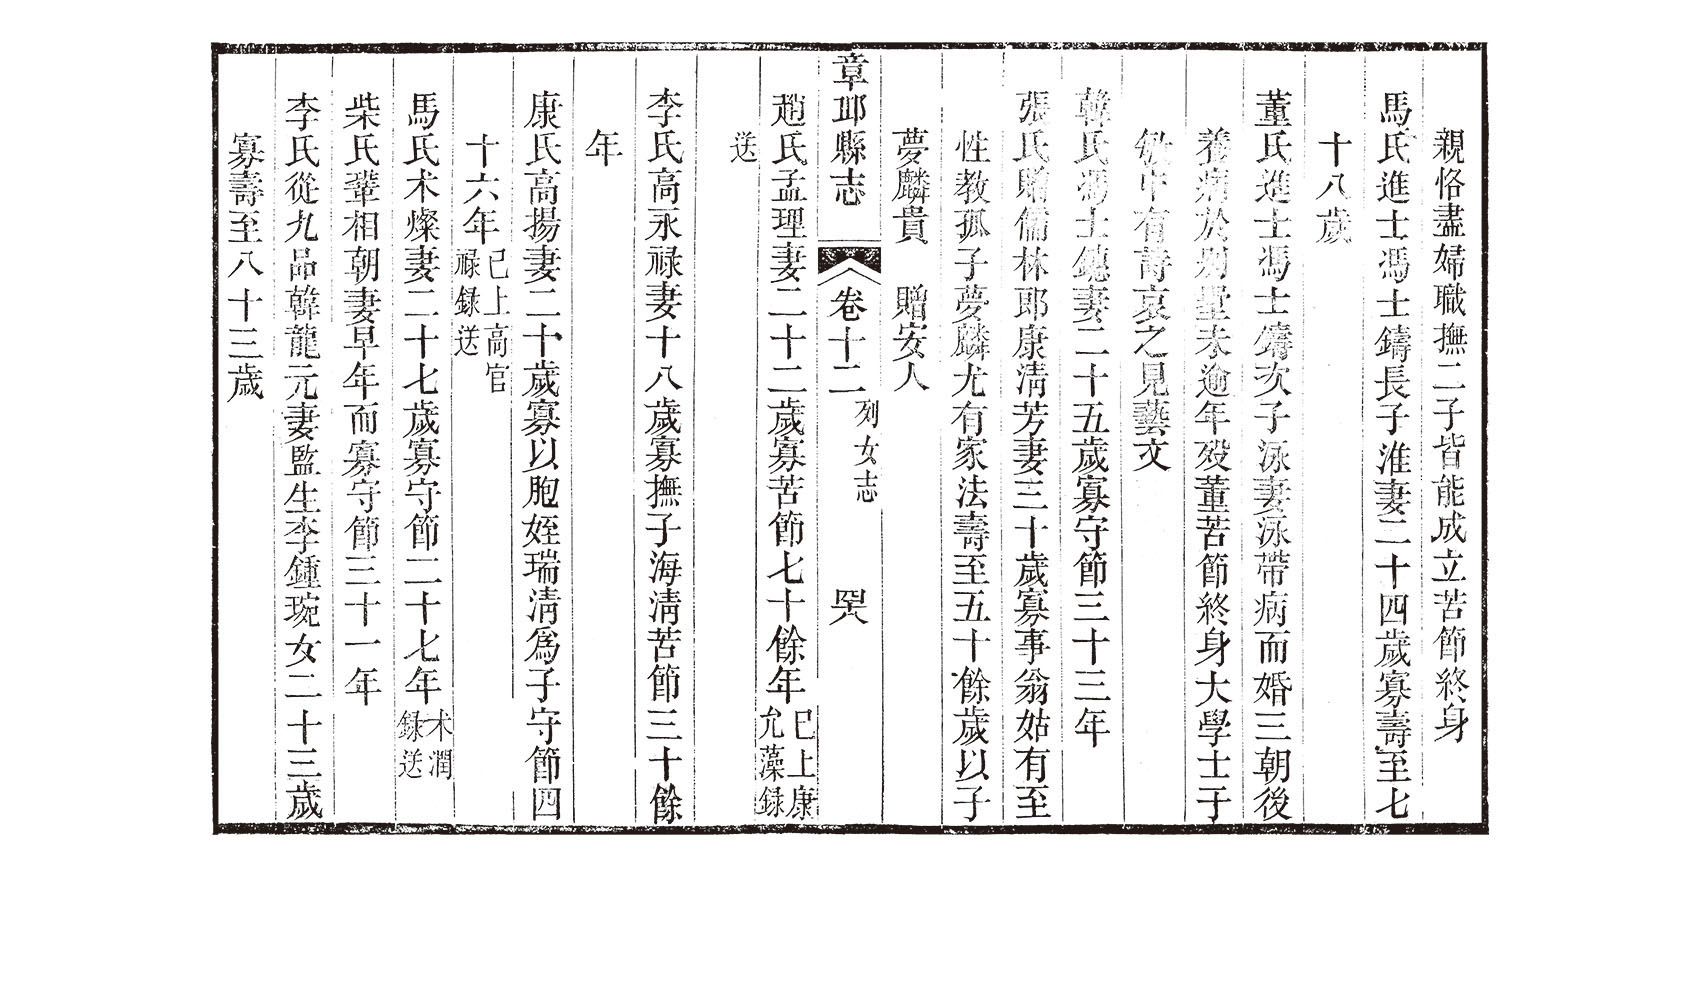 親恪盡婦職撫二子皆能成立苦節終身
馬氏進士馮士鑄長子淮妻二十四歲寡壽至七
十八歲
董氏進士馮士鑄次子泳妻泳帶病而婚三朝後
養病於別墅未逾年歿董苦節終身大學士于
敏中有詩哀之見藝文
韓氏馮士鏸妻二十五歲寡守節三十三年
張氏贈儒林郎康淸芳妻三十歲寡事翁姑有至
性教孤子夢麟尤有家法壽至五十餘歲以子
夢麟貴　贈安人
章邱縣志
卷十二
列女志
趙氏孟理妻二十二歲寡苦節七十餘年已上康
允藻録
送
李氏高永禄妻十八歲寡撫子海淸苦節三十餘
年
康氏高揚妻二十歲寡以胞姪瑞淸爲子守節四
十六年已上高官
禄録送
馬氏术燦妻二十七歲寡守節二十七年术潤
録送
柴氏鞏相朝妻早年而寡守節三十一年
李氏從九品韓龍元妻監生李鍾琬女二十三歲
寡壽至八十三歲